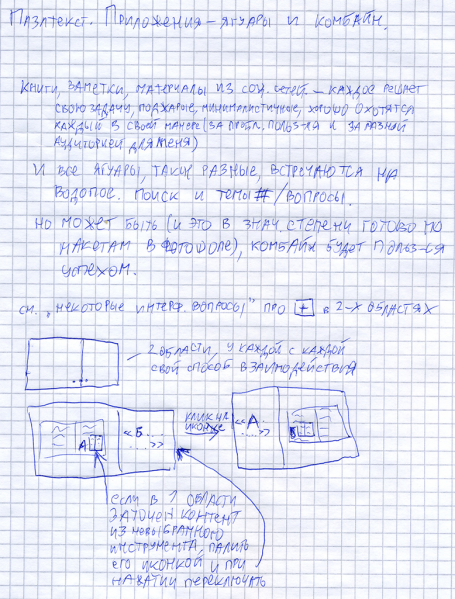 Пазлтекст. Приложения – ягуары и комбайн.
Книги, заметки, материалы из соц. сетей – каждое решает
свою задачу, поджарые, минималистичные, хорошо охотятся
каждый в своей манере (за пробл. польз-ля и за разной
аудиторией для меня)
И все ягуары, такие разные, встречаются на
водопое. Поиск и темы # / вопросы.
Но может быть (и это в знач. степени готово по
макетам в фотошопе), комбайн будет польз-ся
успехом.
см. „некоторые интерф. вопросы" про + в 2-х областях
2 области, у каждой с каждой
свой способ взаимодействия
А
«Б....
....»
клик на
иконке
«А....
....»
Б
если в 1 области
заточен контент
из невыбранного
инструмента, палить
его иконкой и при
нажатии переключать